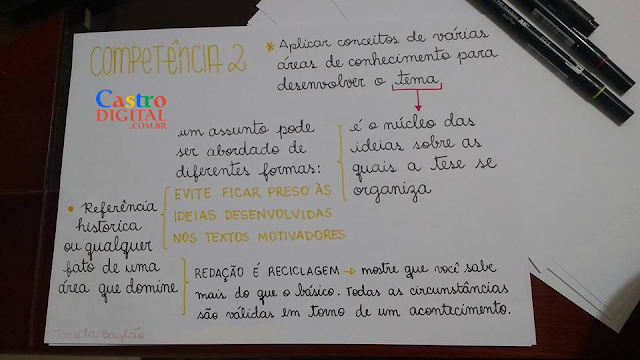 COMPETÊNCIA 2
* Aplicar conceitos de várias
áreas de conhecimento para
desenvolver o tema
Castro
DIGITAL
.COM.BR
um assunto pode
ser abordado de
diferentes formas:
é o núcleo das
ideias sobre as
quais a tese se
organiza
* Referência
histórica
ou qualquer
fato de uma
área que domine
EVITE FICAR PRESO ÀS
IDEIAS DESENVOLVIDAS
NOS TEXTOS MOTIVADORES
REDAÇÃO É RECICLAGEM → mostre que você sabe
mais do que o básico. Todas as circunstâncias
são válidas em torno de um acontecimento.